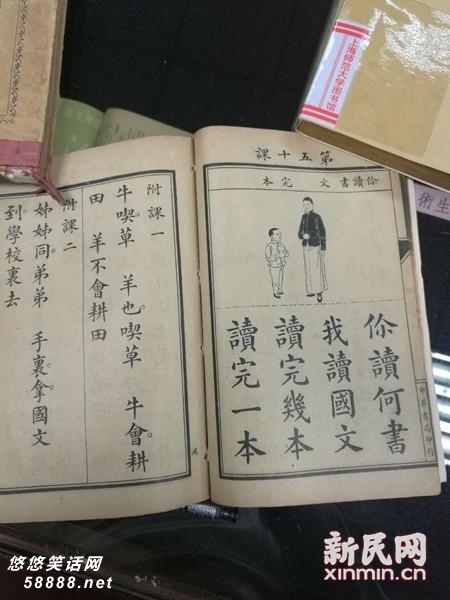 上海师范大学图书馆
術生
第五十課
你讀書 文 完 本
你讀何書
我讀國文
讀完幾本
讀完一本
中華書局印行
附課一
牛喫草 羊也喫草 牛會耕
田 羊不會耕田
附課二
姊姊同弟弟 手裏拿國文
到學校裏去
悠悠笑话网
58888.net
新民网
xinmin.cn